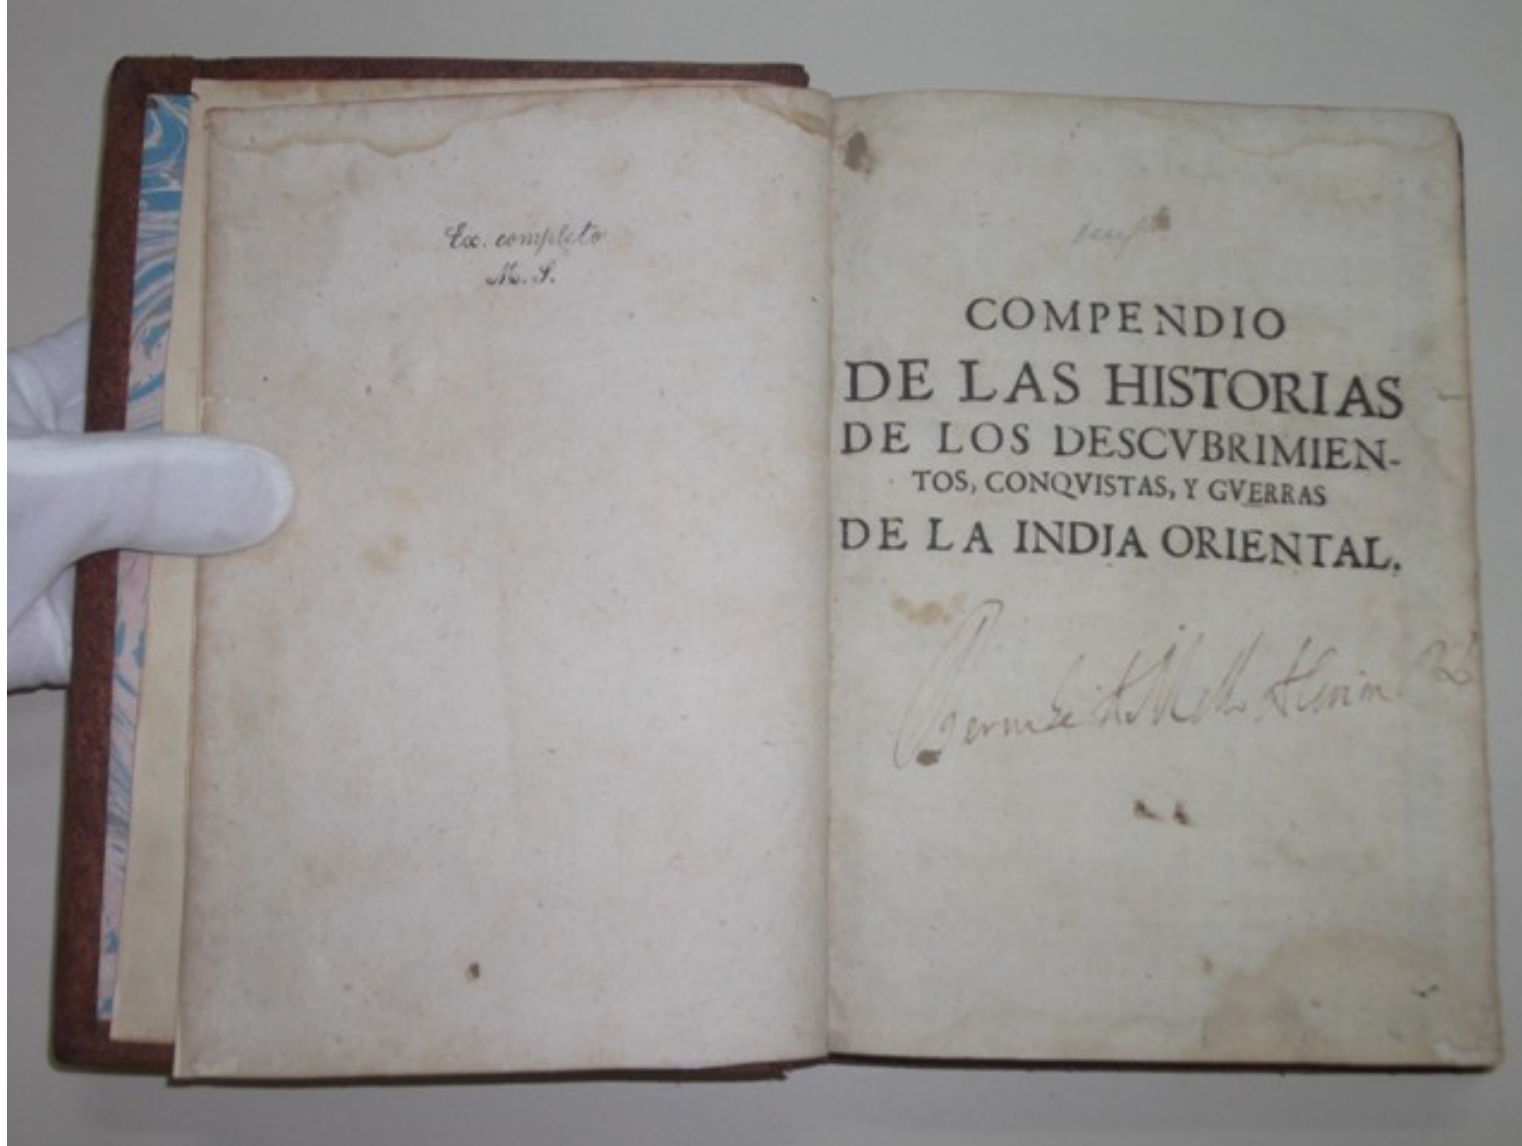 Ex. completo
M. S.
COMPENDIO
DE LAS HISTORIAS
DE LOS DESCVBRIMIEN-
TOS, CONQVISTAS, Y GVERRAS
DE LA INDIA ORIENTAL.